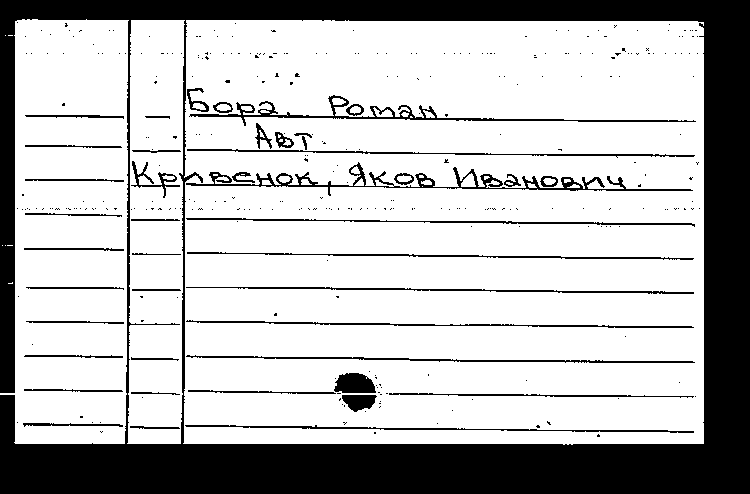 Бора. Роман.
Авт.
Кривенок, Яков Иванович.